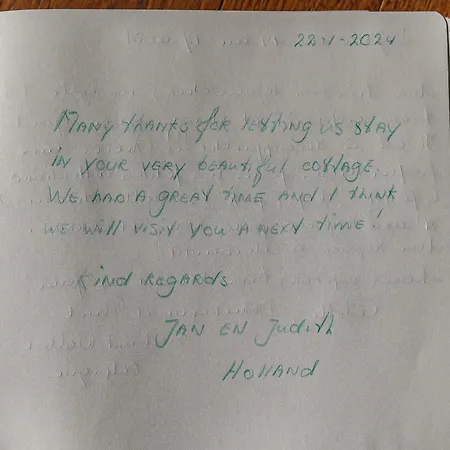 22-1-2024
MANY thANKS for letting us stay
IN your very beautiful cottage.
We had a great time and I think
we will visit you a next time!
Kind regards
Jan en Judith
Holland